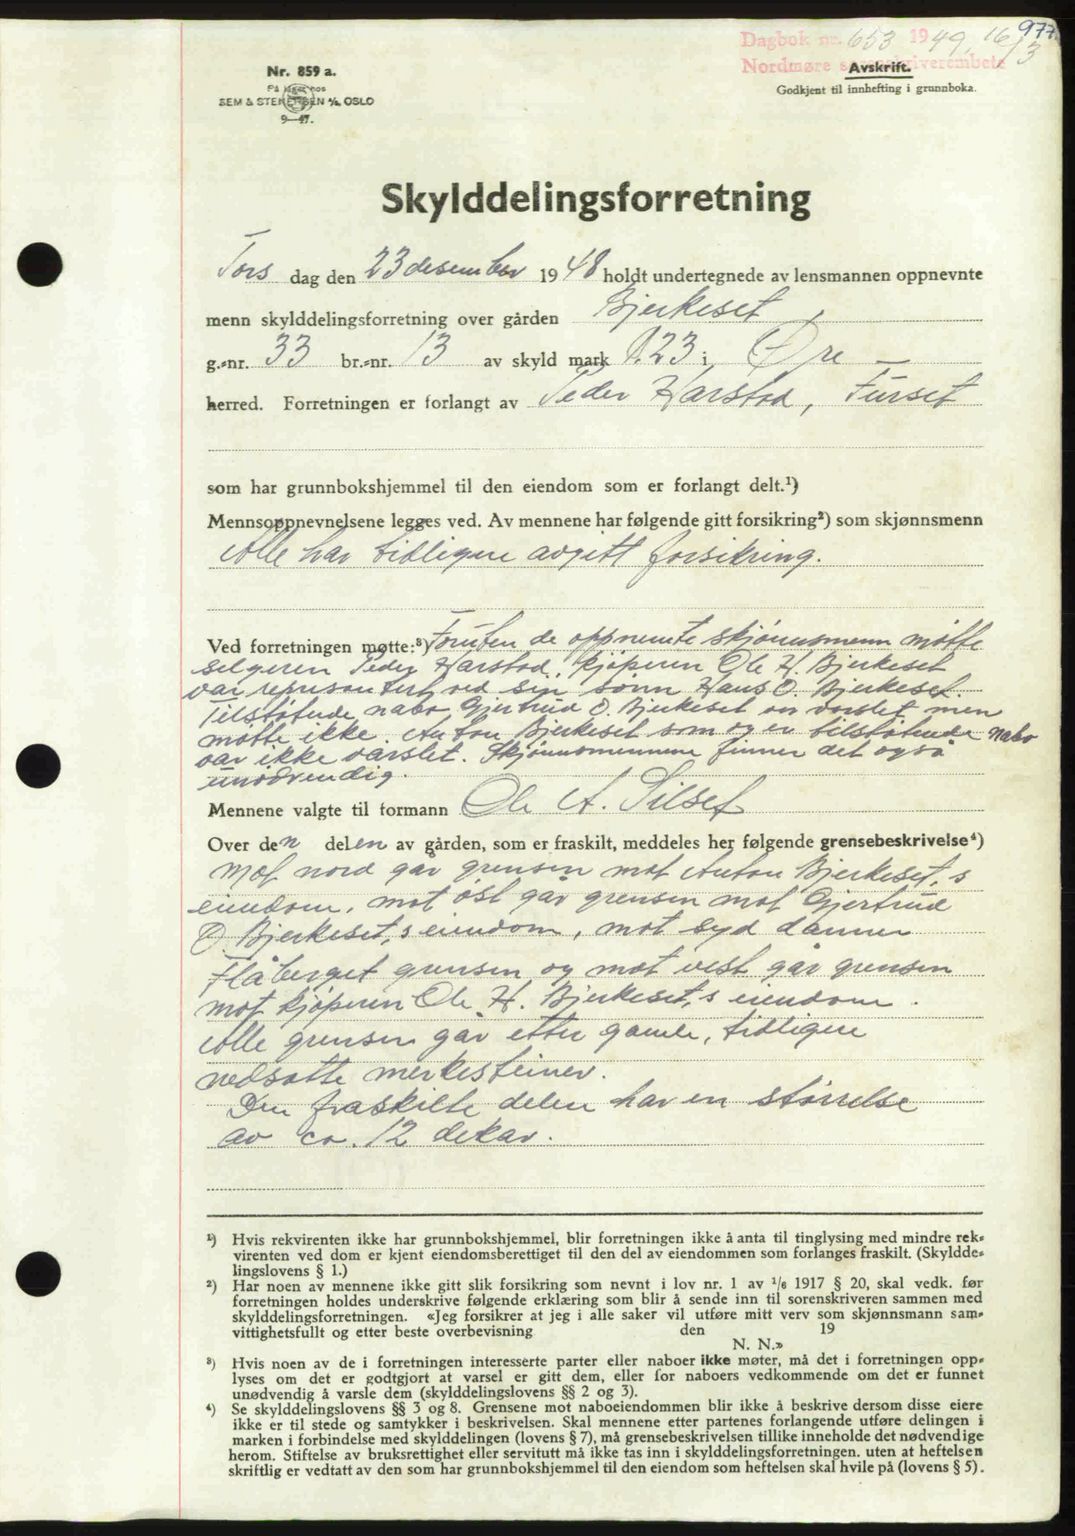 977
Dagbok nr. 653 1949, 16/3
Nordmøre sorenskriverembete
Nr. 859 a.
På lager hos
SEM & STENERSEN A/S, OSLO
9—47.
Avskrift.
Godkjent til innhefting i grunnboka.
Skylddelingsforretning
Tors dag den 23 desember 1948 holdt undertegnede av lensmannen oppnevnte
menn skylddelingsforretning over gården Bjerkeset,
g.-nr. 33 br.-nr. 13 av skyld mark 0.23 i Øre —
herred. Forretningen er forlangt av Peder Harstad, Furset
som har grunnbokshjemmel til den eiendom som er forlangt delt.¹)
Mennsoppnevnelsene legges ved. Av mennene har følgende gitt forsikring²) som skjønnsmenn
Alle har tidligere avgitt forsikring.
Ved forretningen møtte:³) Foruten de oppnevnte skjønnsmenn møtte
selgeren Peder Harstad, kjøperen Ole H. Bjerkeset
var representert ved sin sønn Hans O. Bjerkeset.
Tilstøtende nabo Gjertrud O. Bjerkeset er varslet men
møtte ikke. Anton Bjerkeset som og er tilstøtende nabo
var ikke varslet. Skjønnsmennene finner det også
unødvendig.
Mennene valgte til formann Ole A. Silset
Over den delen av gården, som er fraskilt, meddeles her følgende grensebeskrivelse⁴)
Mot nord går grensen mot Anton Bjerkeset,s
eiendom, mot øst går grensen mot Gjertrud
O. Bjerkeset,s eiendom, mot syd danner
Flåberget grensen og mot vest går grensen
mot kjøperen Ole H. Bjerkeset,s eiendom.
Alle grenser går etter gamle, tidligere
nedsatte merkesteiner.
Den fraskilte delen har en størrelse
av ca. 12 dekar.
¹) Hvis rekvirenten ikke har grunnbokshjemmel, blir forretningen ikke å anta til tinglysing med mindre rek-
virenten ved dom er kjent eiendomsberettiget til den del av eiendommen som forlanges fraskilt. (Skyldde-
lingslovens § 1.)
²) Har noen av mennene ikke gitt slik forsikring som nevnt i lov nr. 1 av 1/6 1917 § 20, skal vedk. før
forretningen holdes underskrive følgende erklæring som blir å sende inn til sorenskriveren sammen med
skylddelingsforretningen. «Jeg forsikrer at jeg i alle saker vil utføre mitt verv som skjønnsmann sam-
vittighetsfullt og etter beste overbevisning den 19
N. N.»
³) Hvis noen av de i forretningen interesserte parter eller naboer ikke møter, må det i forretningen opp-
lyses om det er godtgjort at varsel er gitt dem, eller for naboers vedkommende om det er funnet
unødvendig å varsle dem (skylddelingslovens §§ 2 og 3).
⁴) Se skylddelingslovens §§ 3 og 8. Grensene mot naboeiendommen blir ikke å beskrive dersom disse eiere
ikke er til stede og samtykker i beskrivelsen. Skal mennene etter partenes forlangende utføre delingen i
marken i forbindelse med skylddelingen (lovens § 7), må grensebeskrivelsen tillike inneholde det nødvendige
herom. Stiftelse av bruksrettighet eller servitutt må ikke tas inn i skylddelingsforretningen, uten at heftelsen
skriftlig er vedtatt av den som har grunnbokshjemmel til den eiendom som heftelsen skal hvile på (lovens § 5).